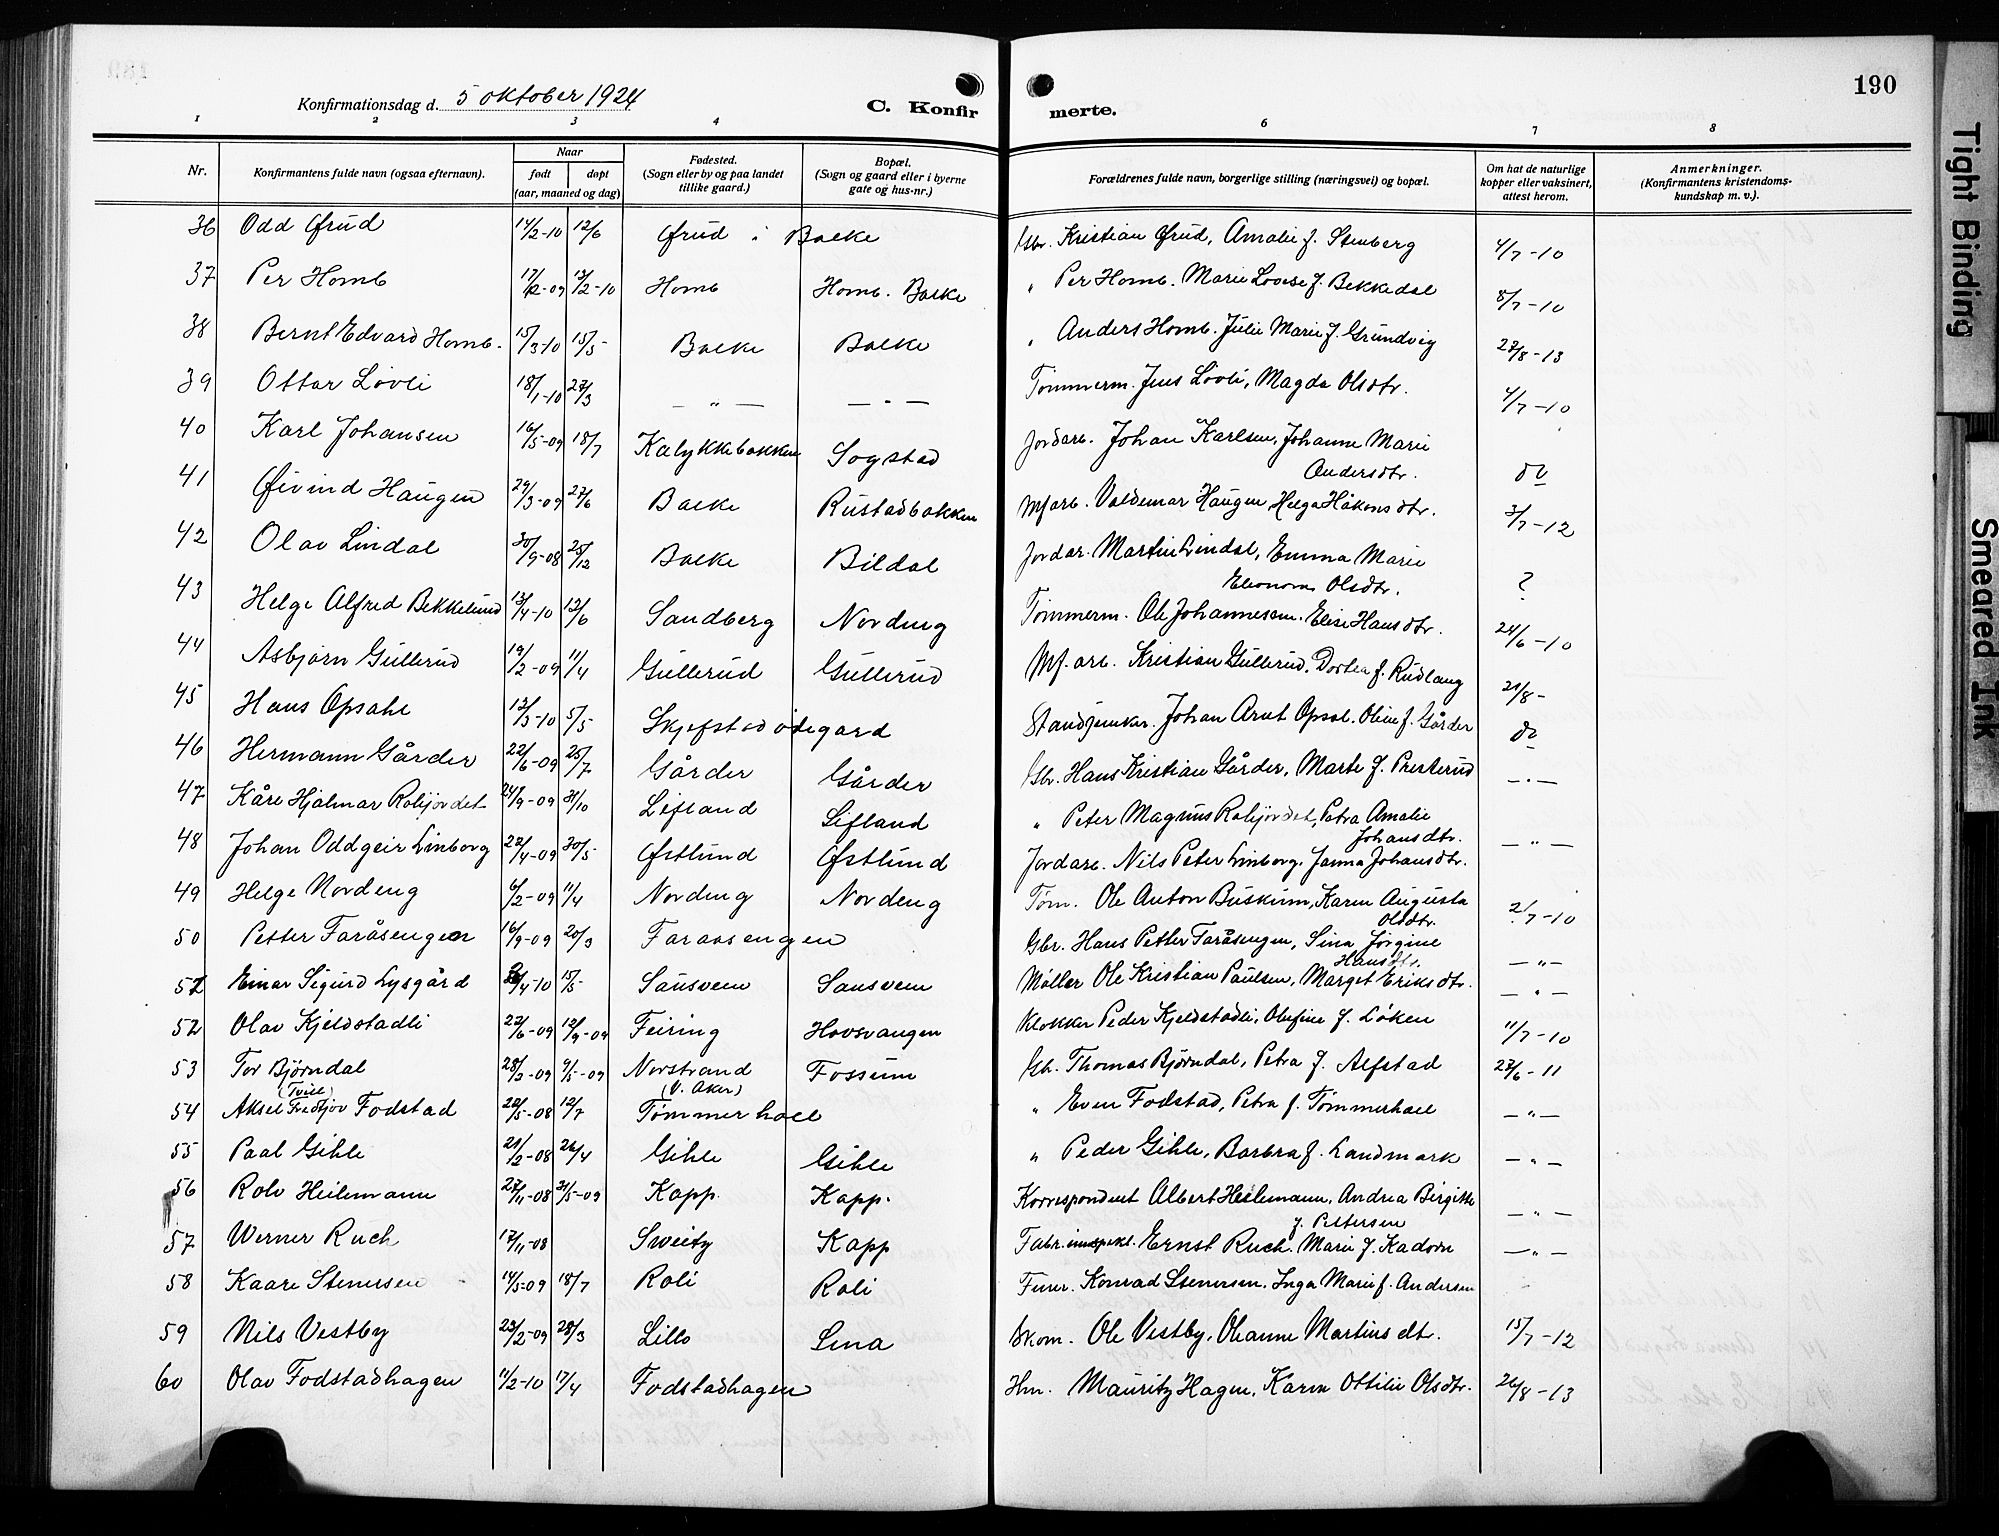 190
Konfirmationsdag d. 5 oktober 1924
C. Konfirmerte.
1 2 3 4 6 7 8
Nr. Konfirmantens fulde navn (ogsaa efternavn). Naar født døpt (aar, maaned og dag) Fødested. (Sogn eller by og paa landet tillike gaard.) Bopæl. (Sogn og gaard eller i byerne gate og hus-nr.) Forældrenes fulde navn, borgerlige stilling (næringsvei) og bopæl. Om hat de naturlige kopper eller vaksinert, attest herom. Anmerkninger. (Konfirmantens kristendomskundskap m. v.).
36 Odd Øfrud 14/2-10 12/6 Øfrud i Balke Gbr. Kristian Øfrud, Amalie f. Stenberg 4/7-10
37 Per Homb 17/12-09 13/2-10 Homb Homb. Balke " Per Homb. Marie Lovise f. Bekkedal 8/7-10
38 Bernt Edvard Homb. 15/3-10 15/5 Balke Balke " Anders Homb. Julie Marie f. Grundvig 27/8-13
39 Ottar Løvli 18/1-10 27/3 — " — — " — Tømmerm. Jens Løvli, Magda Olsdtr. 4/7-10
40 Karl Johansen 16/5-09 18/7 Kalykkebakken Sogstad Jordarb. Johan Karlsen, Johanne Marie Andersdtr. do
41 Øivind Haugen 29/3-09 27/6 Balke Rustadbakken Mfarb. Valdemar Haugen, Helga Håkonsdtr. 3/7-12
42 Olav Lindal 30/9-08 25/12 Balke Bildal Jordar. Martin Lindal, Emma Marie Eleonora Olsdtr. ?
43 Helge Alfred Bekkelund 13/4-10 12/6 Sandberg Nordeng Tømmerm. Ole Johannesen. Elise Hansdtr. 24/6-10
44 Asbjørn Gullerud 19/2-09 11/4 Gullerud Gullerud Mf. arb. Kristian Gullerud. Dortea f. Rudlang 21/8-
45 Hans Opsahl 12/3-10 5/5 Skjefstadødegard Johan Arnt Opsal. Oline f. Gårder do
46 Hermann Gårder 22/6-09 25/7 Gårder Gårder Gbr. Hans Kristian Gårder, Marte f. Presterud — " —
47 Kåre Hjalmar Robijordet 24/9-09 31/10 Lifland Lifland " Peter Magnus Robijordet, Petra Amalie Johansdtr. — " —
48 Johan Oddgeir Linborg 22/4-09 30/5 Østlund Østlund Jordarb. Nils Peter Linborg. Janna Johansdtr.
49 Helge Nordeng 6/2-09 11/4 Nordeng Nordeng Tøm. Ole Anton Buskum, Karen Augusta Olsdtr. 2/7-10
50 Petter Faråsengen 16/9-09 20/3 Faraasengen Gbr. Hans Petter Faråsengen, Sina Jørgine Hansdtr. — " —
51 Einar Sigurd Lysgård /4-10 15/5 Sausvem Sausvem Møller Ole Kristian Paulsen, Marget Eriksdtr. — " —
52 Olav Kjeldstadli 27/6-09 12/9-09 Feiring Hovsvangen Klokker Peder Kjeldstadli, Olufine f. Løken 11/7-10
53 Tor Bjørndal 28/2-09 9/5-09 Norstrand (V. Aker) Fossum Gb. Thomas Bjørndal, Petra f. Alfstad 27/6-11
54 Aksel Fredtjov Fodstad 22/5-08 12/7 Tømmerhoel " Even Fodstad, Petra f. Tømmerhoel — " —
55 Paal Gihle 21/2-08 26/4 Gihle Gihle " Peder Gihle, Barbra f. Landmark — " —
56 Rolv Heilemann 27/11-08 31/5-09 Kapp. Kapp. Korrespondent Albert Heilemann, Andrea Birgitte f. Pettersen — " —
57 Werner Ruch 17/11-08 Sweitz Kapp Fabr. inspekt. Ernst Ruch. Marie f. Kadorn — " —
58 Kaare Stenersen 14/5-09 18/7 Roli Roli Furer. Konrad Stenersen. Inga Marie f. Andersen
59 Nils Vestby 23/2-09 28/3 Lillo Lena Skom. Ole Vestby, Oleanne Martinsdtr. 15/7-12
60 Olav Fodstadhagen 11/2-10 17/4 Fodstadhagen Hm. Mauritz Hagen, Karen Ottilie Olsdtr. 26/8-13
Tight Binding
Smeared Ink